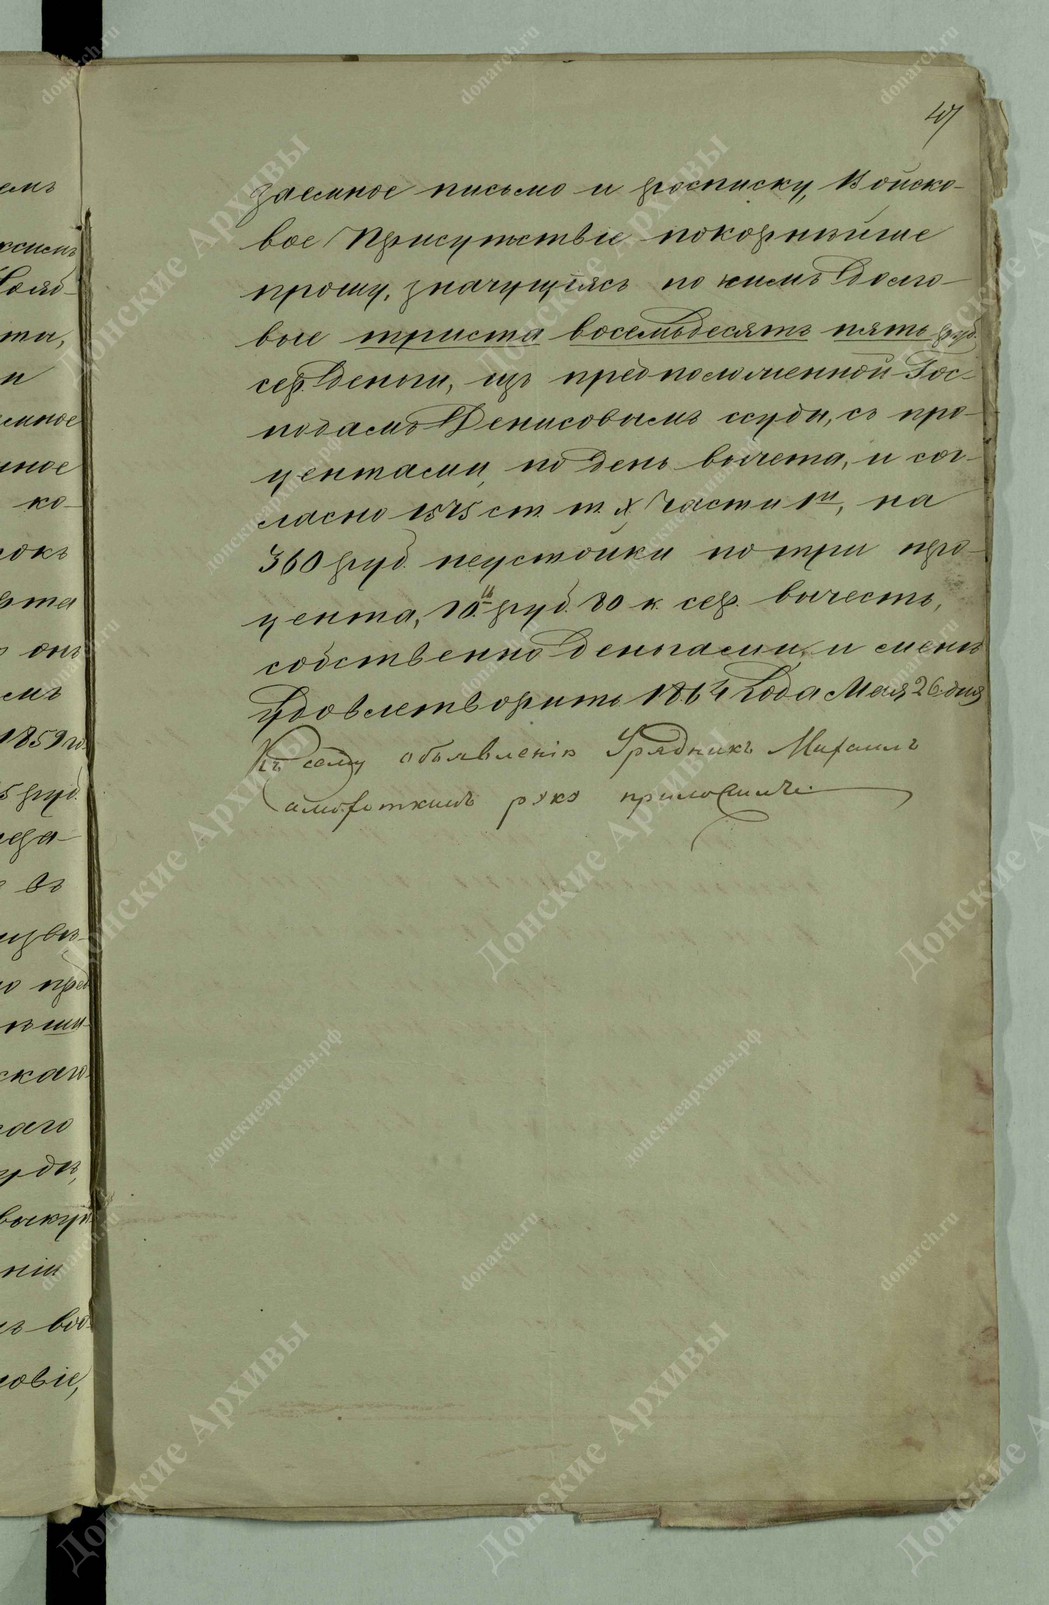 47
заемное письмо и росписку, Войско-
вое Присутствіе покорнѣйше
прошу, значущіяся по нимъ долго-
вые триста восемьдесятъ пять руб.
сер. деньги, изъ предположенной Гос-
подамъ Денисовымъ ссуды, съ про-
центами, по день вычета, и сог-
ласно 1575 ст. т. X, Части 1й, на
360 руб. неустойки по три про-
цента, 10ть руб. 80 к. сер. вычесть,
собственно деньгами, и меня
удовлетворить 1864 года Мая 26 дня
Къ сему объявленію Урядникъ Михаилъ
руку приложилъ.
емъ
та,
и
емное
ное
ко-
окъ
онъ
емъ
1859 го
5 руб.
въ
скаго
наго
ніи
овіе,
Донские Архивы
donarch.ru
донскиеархивы.рф